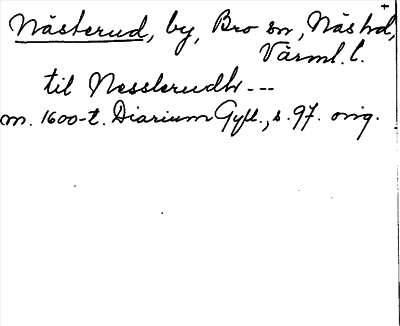 Nästerud, by, Bro sn, Näs hd,
Värml. l.
til Nesslerudh ---
m. 1600-t. Diarium Gyll., s. 97. orig.